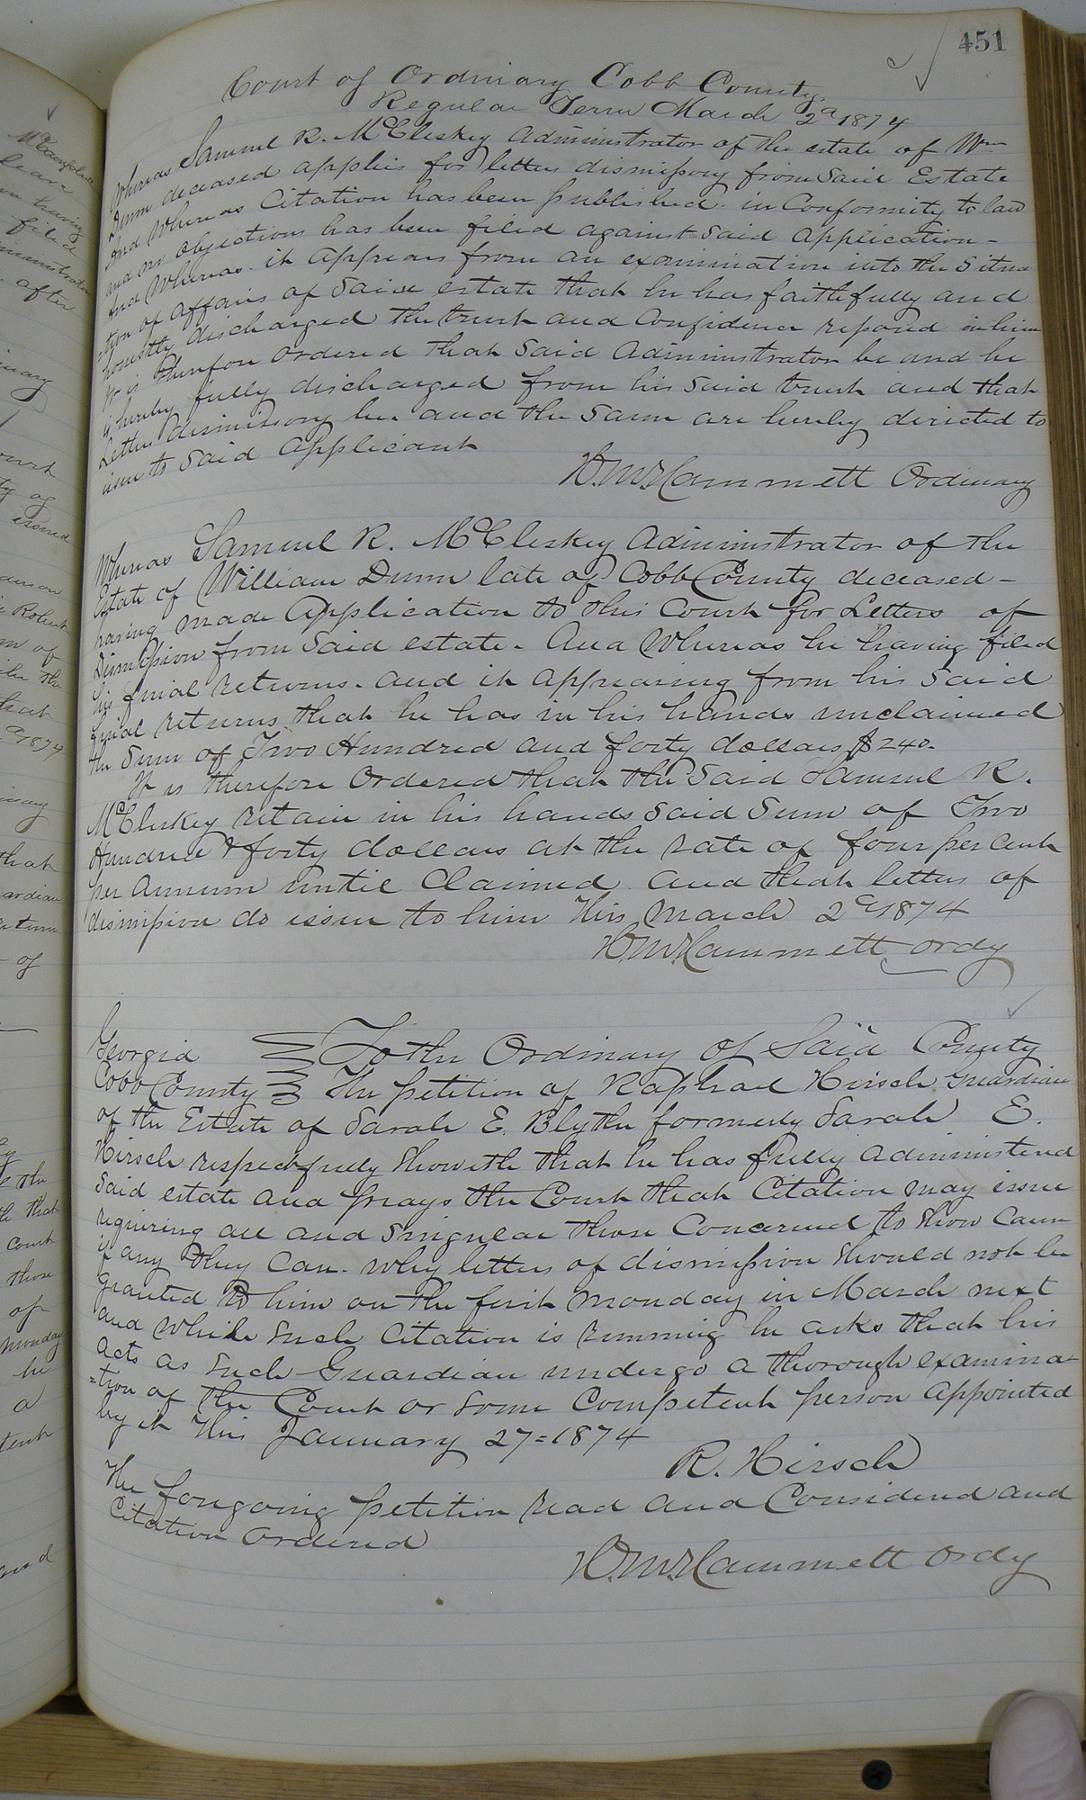 451
Court of Ordinary Cobb County
Regular Term March 2d 1874
Whereas Samuel R. McCleskey Administrator of the estate of Wm
Dunn deceased applies for letters dismissory from said Estate
And Whereas Citation has been published in Conformity to law
and no objections has been filed against said application -
And Whereas it appears from an examination into the situa
=tion of affairs of said estate that he has faithfully and
honestly discharged the trust and Confidence reposed in him
It is therefore ordered that said Administrator be and he
is hereby fully discharged from his said trust and that
Letters dismissory be and the same are hereby directed to
issue to said applicant
H. M. Hammett Ordinary
Whereas Samuel R. McCleskey Administrator of the
Estate of William Dunn late of Cobb County deceased -
having made Application to this Court for Letters of
Dismission from said estate. And Whereas he having filed
his final returns. and it appearing from his said
final returns that he has in his hands unclaimed
the sum of Two Hundred and forty dollars $240.
It is therefore Ordered that the said Samuel R.
McCleskey retain in his hands said sum of Two
Hundred & forty dollars at the rate of four per cent
per annum until Claimed and that letters of
dismission do issue to him This March 2d 1874
H. M. Hammett Ordy
Georgia To the Ordinary of Said County
Cobb County The petition of Raphael Hirsch Guardian
of the Estate of Sarah E. Blythe formerly Sarah E.
Hirsch respectfully Showeth that he has fully administered
said estate and prays the Court that Citation may issue
requiring all and singular those Concerned to show Cause
if any they can. why letters of dismission should not be
granted to him on the first monday in March next
and while such Citation is running he asks that his
acts as such Guardian undergo a thorough examina
=tion of the Court or some Competent person appointed
by it This January 27=1874
R. Hirsch
The foregoing petition read and Considered and
Citation ordered
H. M. Hammett Ordy